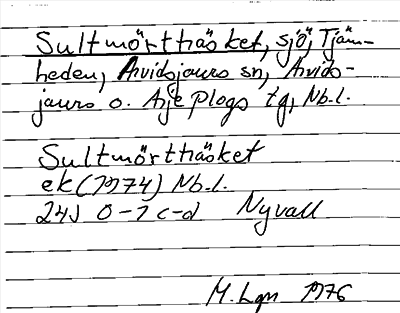 Sultmörtträsket, sjö, Tjäm-
heden, Arvidsjaurs sn, Arvids-
jaurs o. Arjeplogs tg, Nb.l.
Sultmörtträsket
ek (1974) Nb.l.
24J 0-1 c-d Nyvall
M. Lgn 1976